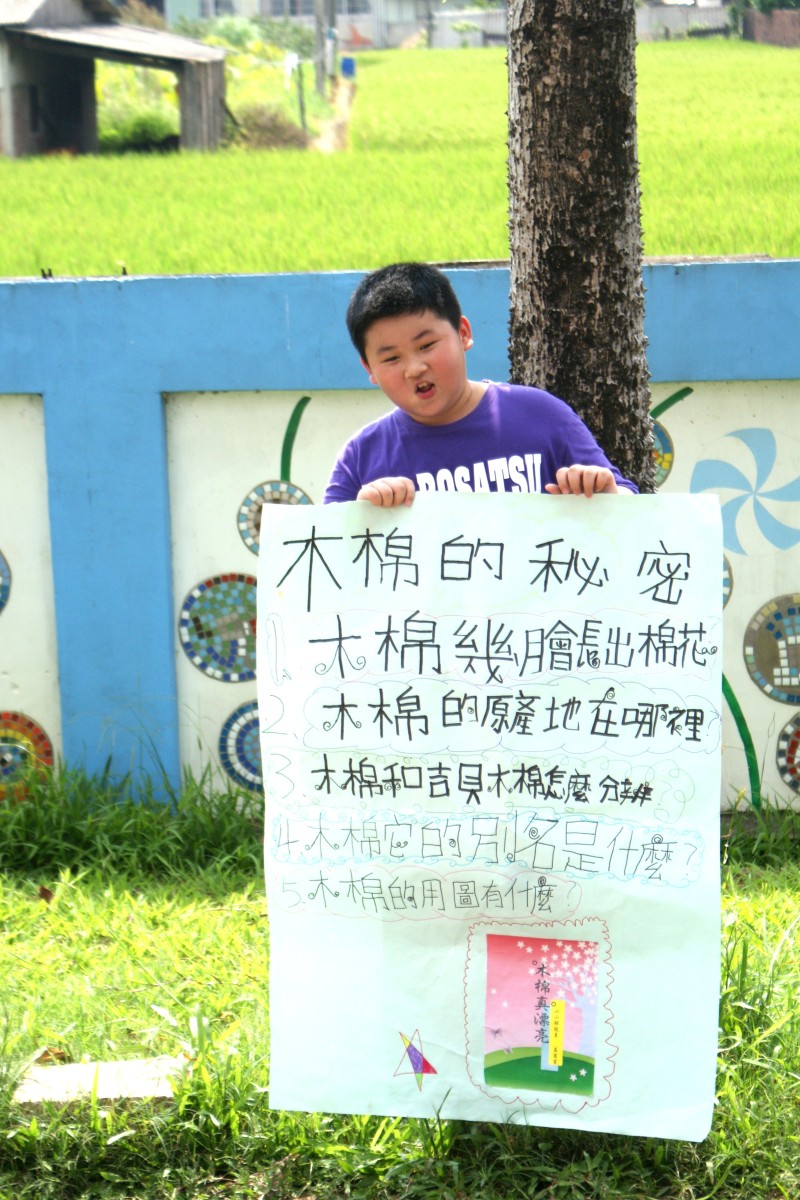 ROSATSU
木棉的秘密
1. 木棉幾月會長出棉花
2. 木棉的原產地在哪裡?
3. 木棉和吉貝木棉怎麼分辨
4. 木棉它的別名是什麼?
5. 木棉的用圖有什麼?
木棉真漂亮